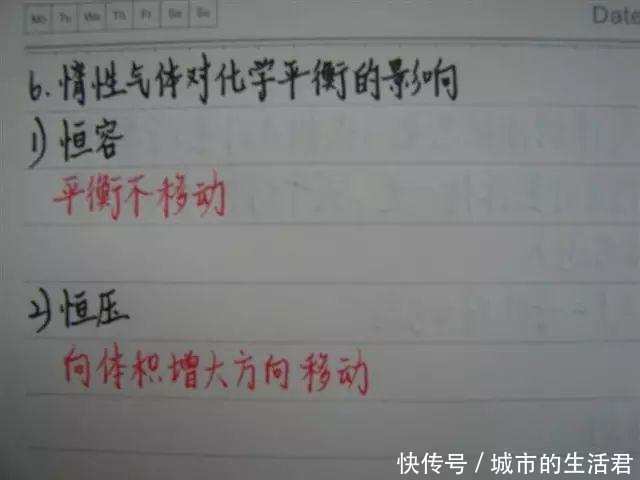 Mo Tu We Th Fr Sa Su
Date
6.惰性气体对化学平衡的影响
1)恒容
平衡不移动
2)恒压
向体积增大方向移动
快传号/城市的生活君